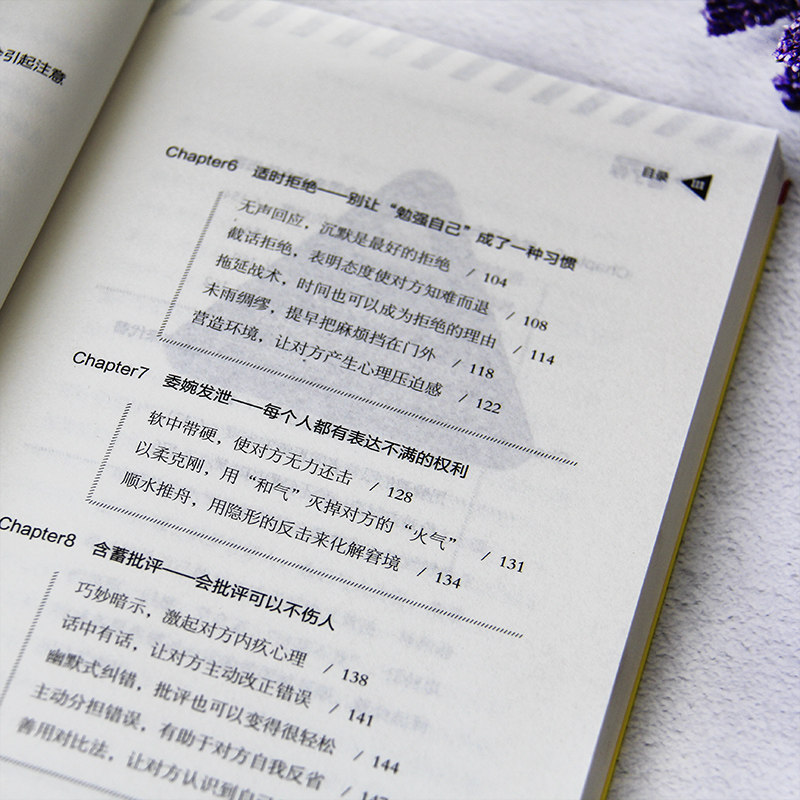 引起注意
目录 III
Chapter6 适时拒绝——别让“勉强自己”成了一种习惯
无声回应，沉默是最好的拒绝 / 104
截话拒绝，表明态度使对方知难而退 / 108
拖延战术，时间也可以成为拒绝的理由 / 114
未雨绸缪，提早把麻烦挡在门外 / 118
营造环境，让对方产生心理压迫感 / 122
Chapter7 委婉发泄——每个人都有表达不满的权利
软中带硬，使对方无力还击 / 128
以柔克刚，用“和气”灭掉对方的“火气” / 131
顺水推舟，用隐形的反击来化解窘境 / 134
Chapter8 含蓄批评——会批评可以不伤人
巧妙暗示，激起对方内疚心理 / 138
话中有话，让对方主动改正错误 / 141
幽默式纠错，批评也可以变得很轻松 / 144
主动分担错误，有助于对方自我反省 / 147
善用对比法，让对方认识到自己